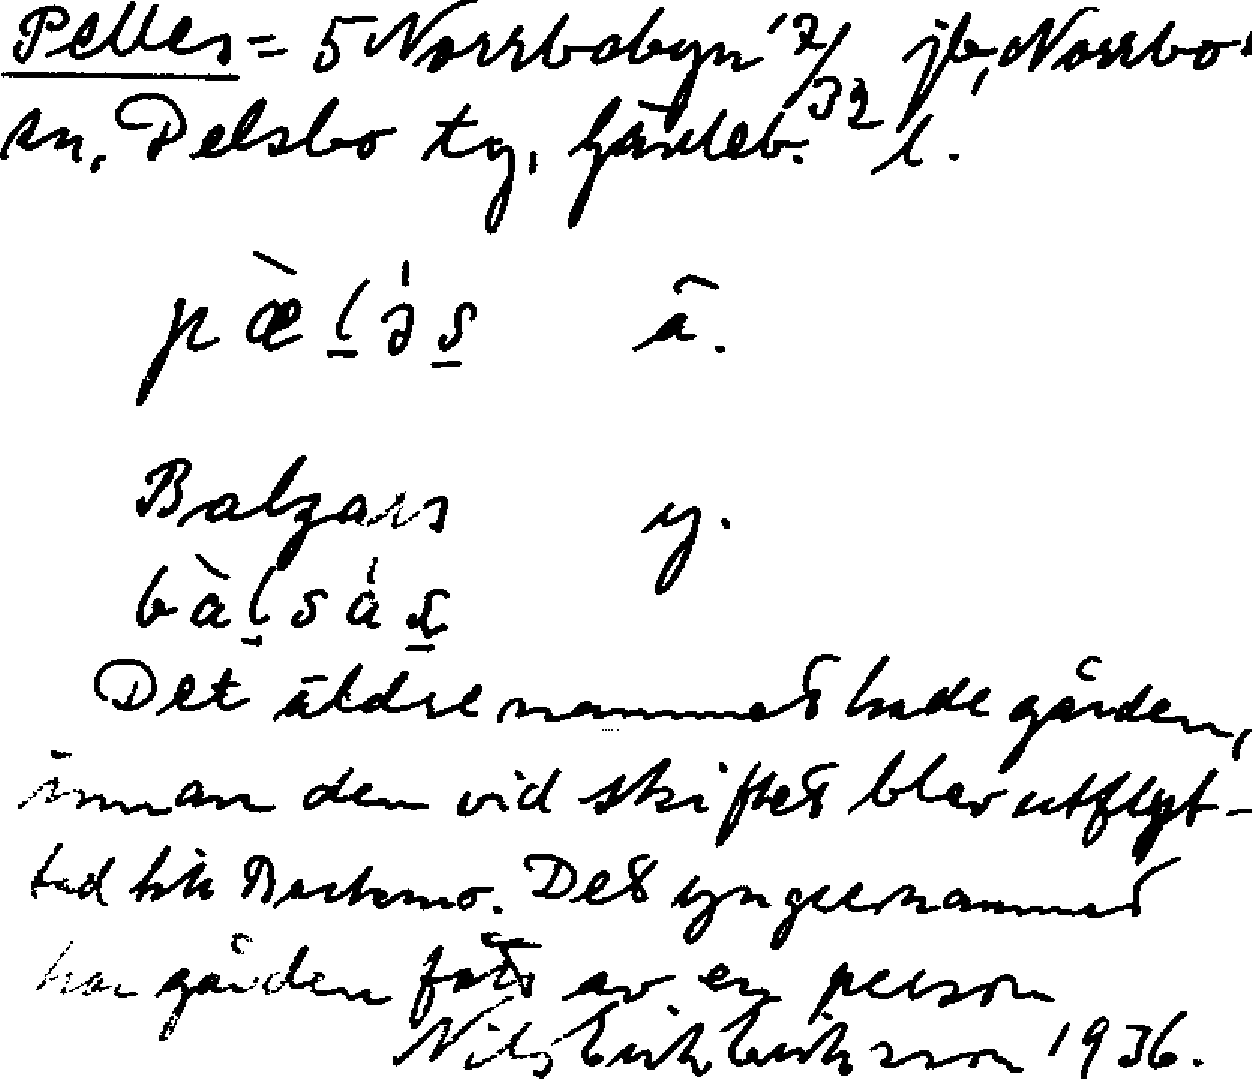 Pelles = 5 Norrbobyn 1 7/32 jb, Norrbo
sn, Delsbo tg, Gävleb. l.
pæ̀l̠ə̍s̠ ä.
Balzars y.
bàl̠sa̍s̠
Det äldre namnet hade gården,
innan den vid skiftet blev utflyt-
tad till Bortomo. Det yngre namnet
har gården fått av en person
Nils Erik Eriksson 1936.